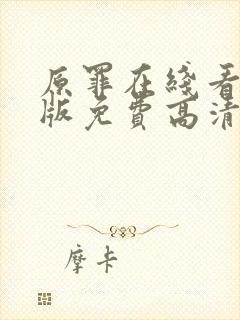 原罪在线看
版免费高清
摩卡